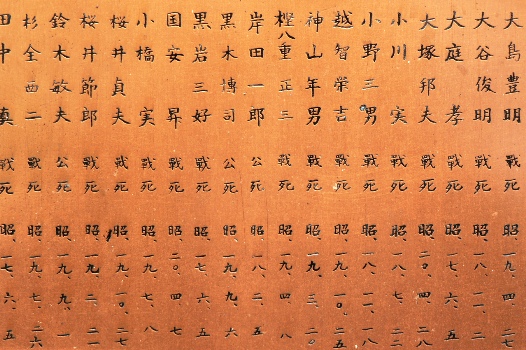 大島豊明 戰死 昭、一九、四、二七
大谷俊明 戰死 昭、一八、一一、二
大庭孝 戰死 昭、一七、六、五
大塚邦夫 戰死 昭、二〇、四、二八
小川実 戰死 昭、一八、七、二三
小野三男 戰死 昭、一八、一一、一八
越智榮吉 戰死 昭、一九、一〇、二五
神山年男 戰死 昭、一九、三、二〇
樫八重正三 戰死 昭、一九、四、八
岸田一郎 公死 昭、一八、二、五
黒木博司 公死 昭、一九、九、六
黒岩三好 戰死 昭、一七、六、五
国安昇 戰死 昭、二〇、四、七
小橋実 戰死 昭、一九、七、八
桜井貞夫 戰死 昭、一九、一〇、二七
桜井節郎 戰死 昭、一九、二、二一
鈴木敏夫 公死 昭、一九、九、一
杉全酉二 戰死 昭、一九、六、二六
田中真 戰死 昭、一七、六、五